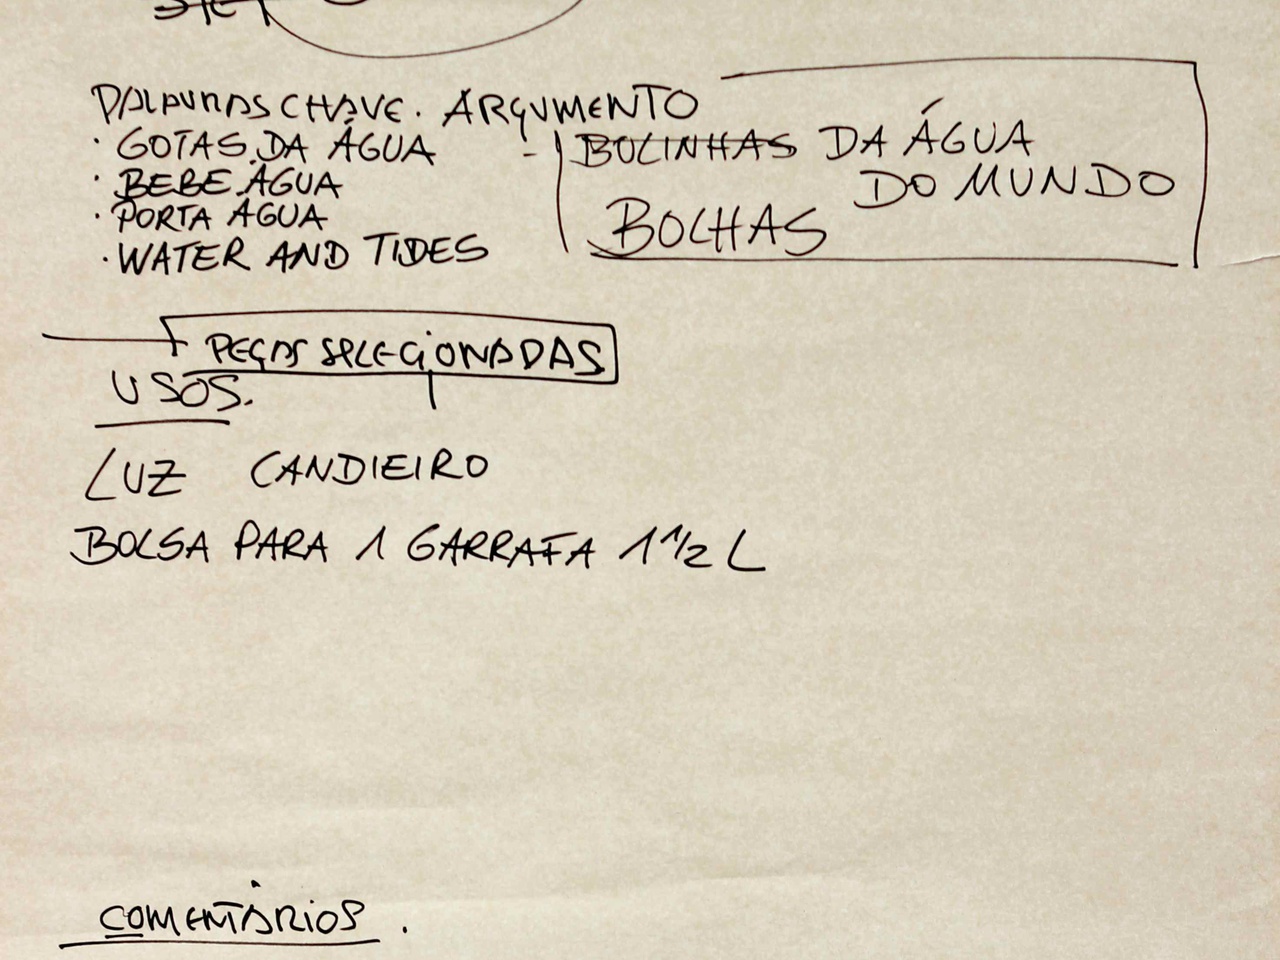 PALAVRAS CHAVE. ARGUMENTO
· GOTAS DA ÁGUA
· BEBE ÁGUA
· PORTA ÁGUA
· WATER AND TIDES
- BOLINHAS DA ÁGUA
DO MUNDO
BOLHAS
PEÇAS SELECIONADAS
USOS.
LUZ CANDIEIRO
BOLSA PARA 1 GARRAFA 1 1/2 L
COMENTÁRIOS.